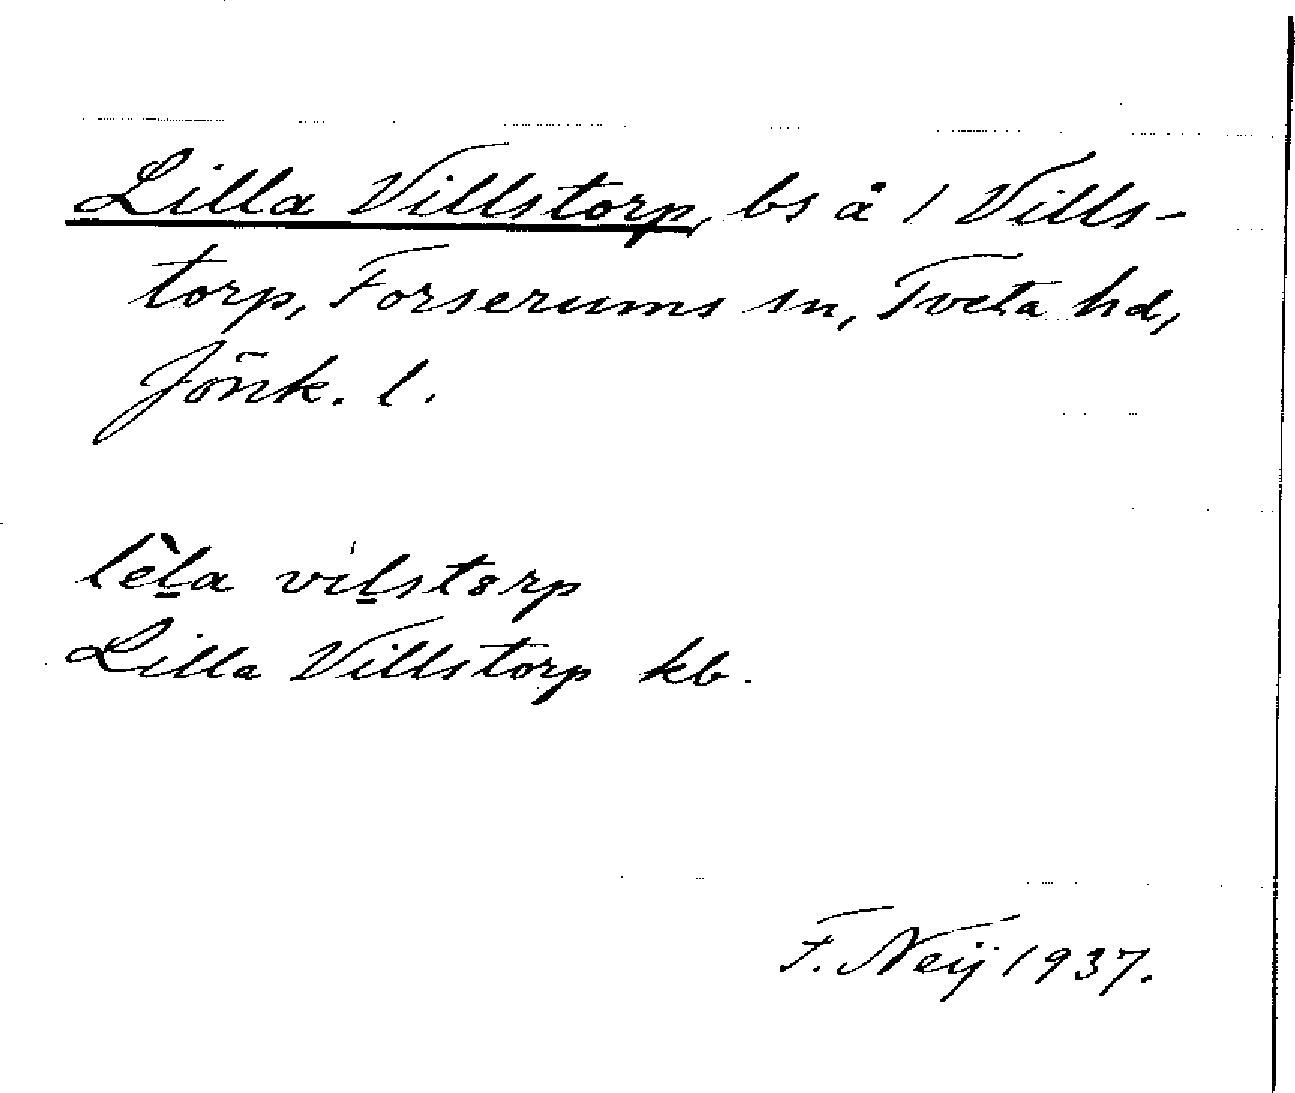 Lilla Villstorp, bs å 1 Vills-
torp, Forserums sn, Tveta hd,
Jönk. l.
lèl̠a vil̠stȣrp
Lilla Villstorp kb.
F. Neij 1937.